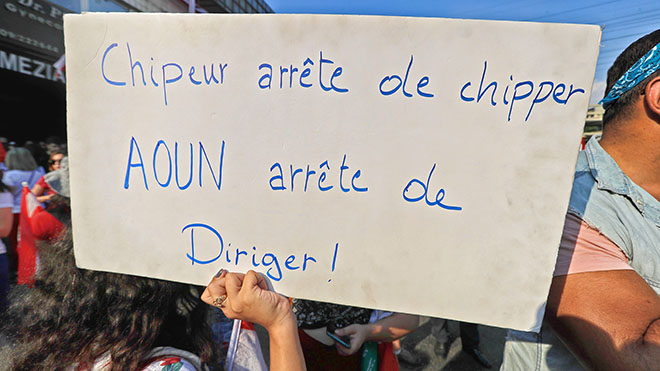 Dr. P
Chipeur arrête de chipper
AOUN arrête de
Diriger !
MEZIA